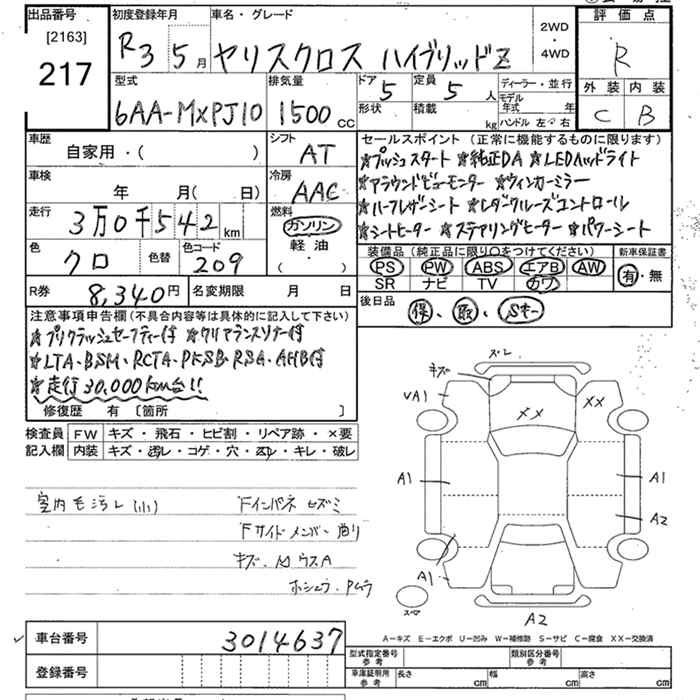 出品番号 初度登録年月 車名・グレード 評価点
[2163]
217
R3 5月 ヤリスクロス ハイブリッドZ 2WD・4WD R
型式 排気量 ドア 定員 ディーラー・並行 外装 内装
6AA-MXPJ10 1500cc 5 5人 モデル年式 年 C B
形状 積載 kg ハンドル 左・右
車歴 シフト セールスポイント (正常に機能するものに限ります)
自家用・( ) AT ☆プッシュスタート ☆純正DA ☆LEDヘッドライト
車検 冷房 ☆アラウンドビューモニター ☆ウィンカーミラー
年 月( 日) AAC ☆ハーフレザーシート ☆レダクルーズコントロール
走行 燃料 ☆シートヒーター ☆ステアリングヒーター ☆パワーシート
3万0千542km ガソリン
軽油
( ・ )
色 色替 色コード 装備品(純正品に限り○をつけてください) 新車保証書
クロ 209 PS PW ABS エアB AW 有・無
SR ナビ TV カワ
R券 8,340円 名変期限 月 日 後日品 保、取、Sキー
注意事項申告欄(不具合内容等は具体的に記入して下さい)
☆プリクラッシュセーフティー付 ☆クリアランスソナー付
☆LTA、BSM、RCTA、PKSB、RSA、AHB付
☆走行30,000km台!!
修復歴 有 〔箇所 〕
検査員 FW キズ・飛石・ヒビ割・リペア跡・×要
記入欄 内装 キズ・汚レ・コゲ・穴・スレ・キレ・破レ
室内毛汚レ(小) Fインパネ ヒズミ
Fサイドメンバー 曲リ
ズレ
キズ
VA1 XX XX
A1 A1
A2
A1
スペア
A2
車台番号 3014637
A-キズ E-エクボ U-凹み W-補修跡 S-サビ C-腐食 XX-交換済
登録番号 型式指定番号 参考 類別区分番号 参考
車庫証明用 参考 長さ cm 幅 cm 高さ cm